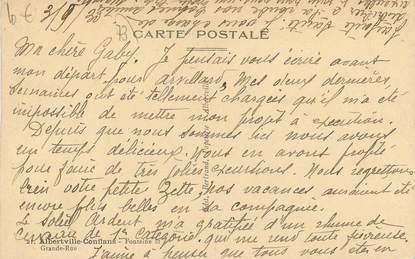 6 € 3/9/
CARTE POSTALE
Ma chère Gaby, Je pensais vous écrire avant
mon départ pour Arvillard, Mes deux dernières
semaines ont été tellement chargées qu'il m'a été
impossible de mettre mon projet à exécution.
Depuis que nous sommes ici nous avons
un temps délicieux. Nous en avons profité
pour faire de très jolies excursions. Nous regrettons
bien votre petite Zette, nos vacances auraient été
encore plus belles en sa compagnie.
Le soleil ardent m'a gratifiée d'un rhume de
cerveau de 1re catégorie, qui me rend toute fiévreuse.
J'aime à penser que tous vous êtes en
21. Albertville-Conflans - Fontaine
Grande-Rue